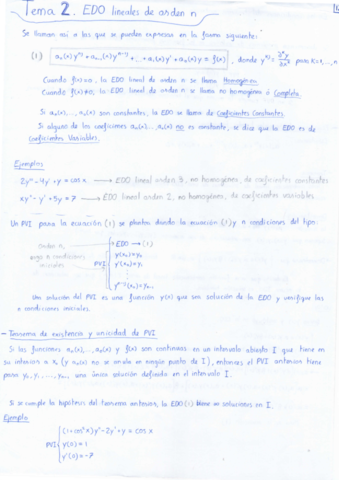 Tema 2. EDO lineales de orden n
Se llaman así a las que se pueden expresar en la forma siguiente:
(1) aₙ(x)y⁽ⁿ⁾ + aₙ₋₁(x)y⁽ⁿ⁻¹⁾ + ... + a₁(x)y' + a₀(x)y = f(x), donde y⁽ᵏ⁾ = para k=1,...,n
Cuando f(x)=0, la EDO lineal de orden n se llama Homogénea
Cuando f(x)≠0, la EDO lineal de orden n se llama no homogénea ó Completa.
Si aₙ(x),...,a₀(x) son constantes, la EDO se llama de Coeficientes Constantes
Si alguno de los coeficientes aₙ(x),...,a₀(x) no es constante, se dice que la EDO es de
Coeficientes Variables.
Ejemplos
2y''' - 4y' + y = cos x → EDO lineal orden 3, no homogénea, de coeficientes constantes
xy'' - y' + 5y = 7 → EDO lineal orden 2, no homogénea, de coeficientes variables
Un PVI para la ecuación (1) se plantea dando la ecuación (1) y n condiciones del tipo:
Orden n,
n condiciones
iniciales
PVI
EDO → (1)
y(x₀) = y₀
y'(x₀) = y₁
y⁽ⁿ⁻¹⁾(x₀) = yₙ₋₁
Una solución del PVI es una función y(x) que sea solución de la EDO y verifique las
n condiciones iniciales.
- Teorema de existencia y unicidad de PVI
Si las funciones aₙ(x),...,a₀(x) y f(x) son continuas en un intervalo abierto I que tiene en
su interior a x₀ (y aₙ(x) no se anula en ningún punto de I), entonces el PVI anterior tiene
para y₀, y₁, ..., yₙ₋₁ una única solución definida en el intervalo I.
Si se cumple la hipótesis del teorema anterior, la EDO (1) tiene soluciones en I.
Ejemplo
PVI
(1+cos²x)y'' - 2y' + y = cos x
y(0) = 1
y'(0) = -7